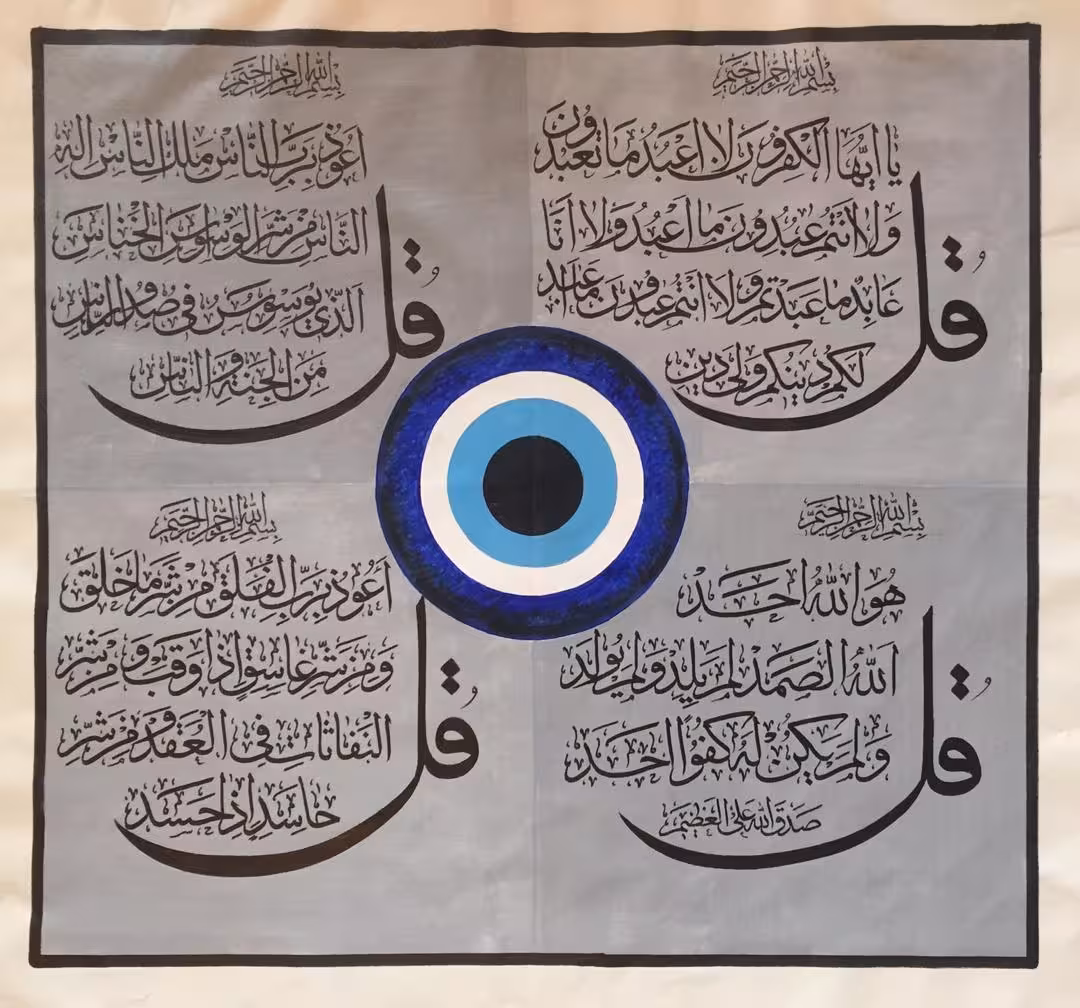 بسم الله الرحمن الرحيم
قُل
يا ايُّها الكفرون لا اعبدُ ما تعبدون
ولا انتم عبدون ما اعبدُ ولا انا
عابدٌ ما عبدتم ولا انتم عبدون ما اعبد
لكم دينكم ولي دين
بسم الله الرحمن الرحيم
قُل
اعوذ بربّ النّاس ملك النّاس اله
النّاس من شر الوسواس الخنّاس
الذي يوسوس في صدور الناس
من الجنة والناس
بسم الله الرحمن الرحيم
قُل
هو الله احد
الله الصمد لم يلد ولم يولد
ولم يكن له كفوا احد
صدق الله علي العظيم
بسم الله الرحمن الرحيم
قُل
اعوذ بربّ الفلق من شر ما خلق
ومن شر غاسق اذا وقب ومن شر
النفاثات في العقد ومن شر
حاسد اذا حسد